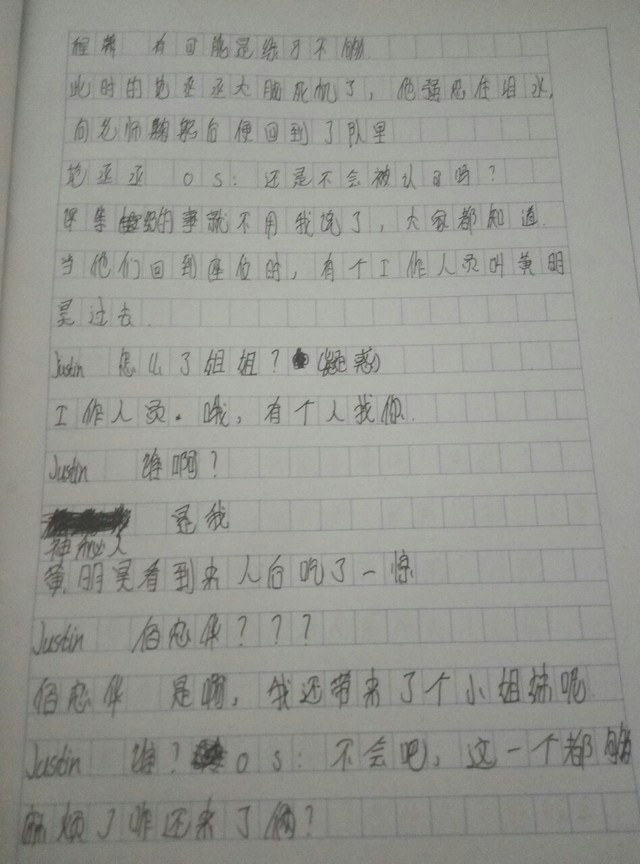 程潇 有可能是练了不够
此时的范丞丞大脑死机了，他强忍住泪水，
向老师鞠躬后便回到了队里
范丞丞 os：还是不会被认可吗？
评等级的事就不用我说了，大家都知道
当他们回到座位时，有个工作人员叫黄明
昊过去
Justin 怎么了姐姐？（疑惑）
工作人员。哦，有个人找你.
Justin 谁啊？
是我
神秘人
黄明昊看到来人后吃了一惊
Justin ？？？
是啊，我还带来了个小姐妹呢
Justin 谁？ os：不会吧，这一个都够
麻烦了咋还来了俩？